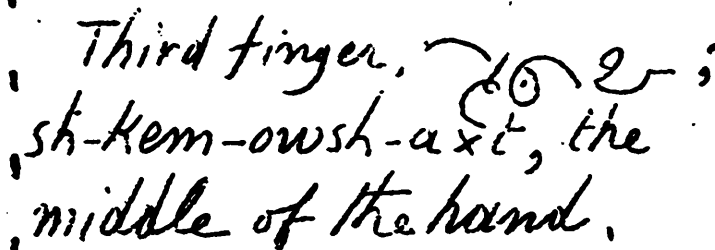 Third finger, ;
sh-kem-owsh-axt, the
middle of the hand.